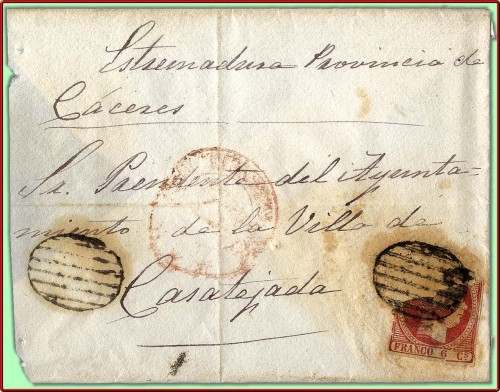 Estremadura Provincia de
Cáceres
Sr. Presidente del Ayunta=
miento de la Villa de
Casatejada
FRANCO 6 Cs